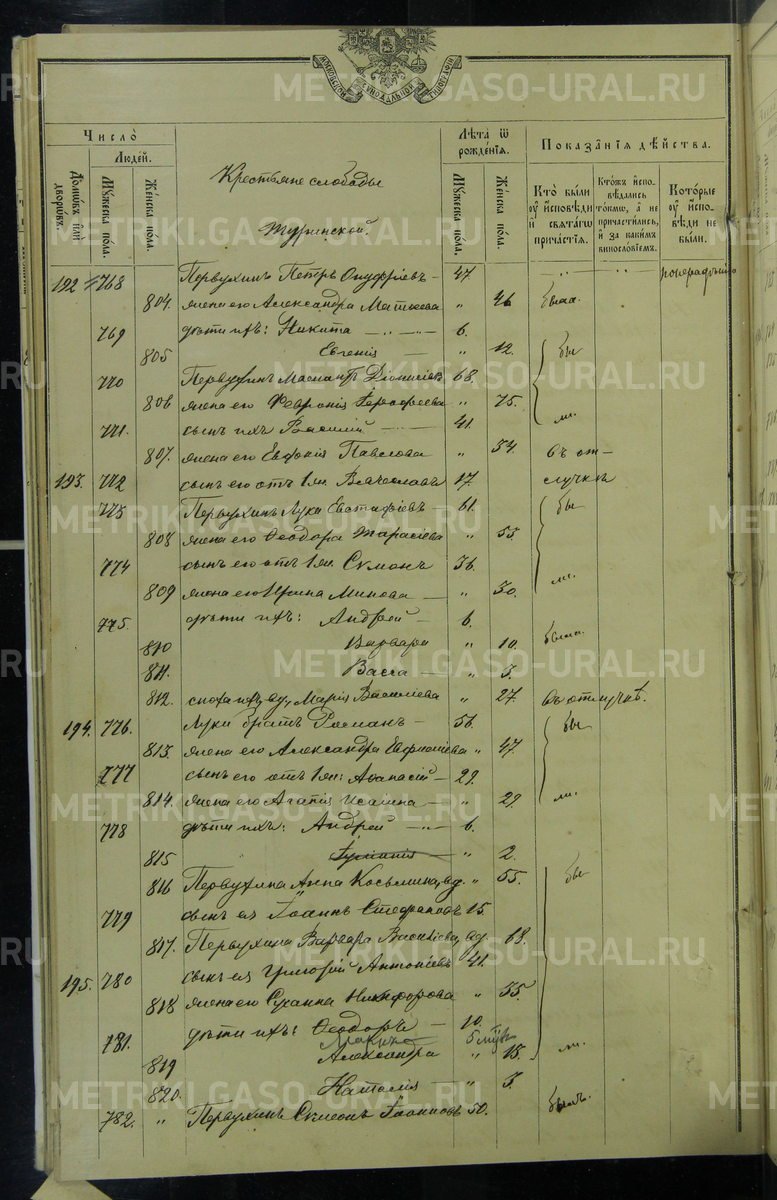 Число̀
Людѐй.
Домѡвъ или дворѡвъ.
Мꙋжеска пола.
Женска пола.
Крестьяне слободы
Туринской.
Лѣта ѿ рожденїѧ.
Мꙋжеска пола.
Женска пола.
Показанїѧ дѣйства.
Кто были ᲂу исповѣди и свѧтагѡ причастїѧ.
Ктожъ исповѣдались токмѡ, а не причастились, и за какимъ винословїемъ.
Которые ᲂу исповѣди не были.
192 768 Первухинъ Петръ Онуфріевъ – 47.
804. жена его Александра Матвеева „ 46 была.
769 дѣти ихъ: Никита 6.
805 Евгенія „ 12. бы
770 Первухинъ Діонисіевъ 68.
806 жена его Февронія „ 75. ли.
771. сынъ ихъ Василій 41.
807. жена его Евфросинія Павлова „ 34 въ от-
193. 772 сынъ его отъ 1 ж. Вячеславъ 17 лучкѣ
773 Первухинъ Лука Евстафіевъ 61. бы
808 жена его Ѳеодора Тарасіева „ 55
774 сынъ его отъ 1 ж. Симонъ 36.
809 жена его Ирина Минова – „ 30. ли.
775. дѣти ихъ: Андрей – 6.
810 Варвара „ 10. была.
811. Васса – „ 3.
812. сноха ихъ, вд. Марія Василіева „ 27 въ отлучкѣ.
194. 776. Луки братъ Романъ – 56. бы
813. жена его Александра „ 47
777 сынъ его отъ 1 ж: Аѳанасій – 29.
814. жена его Агапія Исаина – „ 29 ли.
778 дѣти ихъ: Андрей 6.
815 „ 2.
816 Первухина Анна Косьмина, вд. „ 55. бы
779 сынъ ея Іоаннъ Стефановъ 15.
817. Первухина Варвара Василіева, вд. 68.
195. 780 сынъ ея Григорій Антоніевъ 41.
818 жена его Сусанна Никифорова „ 35
781. дѣти ихъ: Ѳеодоръ – 10.
819 Александра „ 15. ли.
820. Наталія – „ 3.
782. „ Первухинъ Симеонъ Іоанновъ 50. былъ.
METRIKI.GASO-URAL.RU